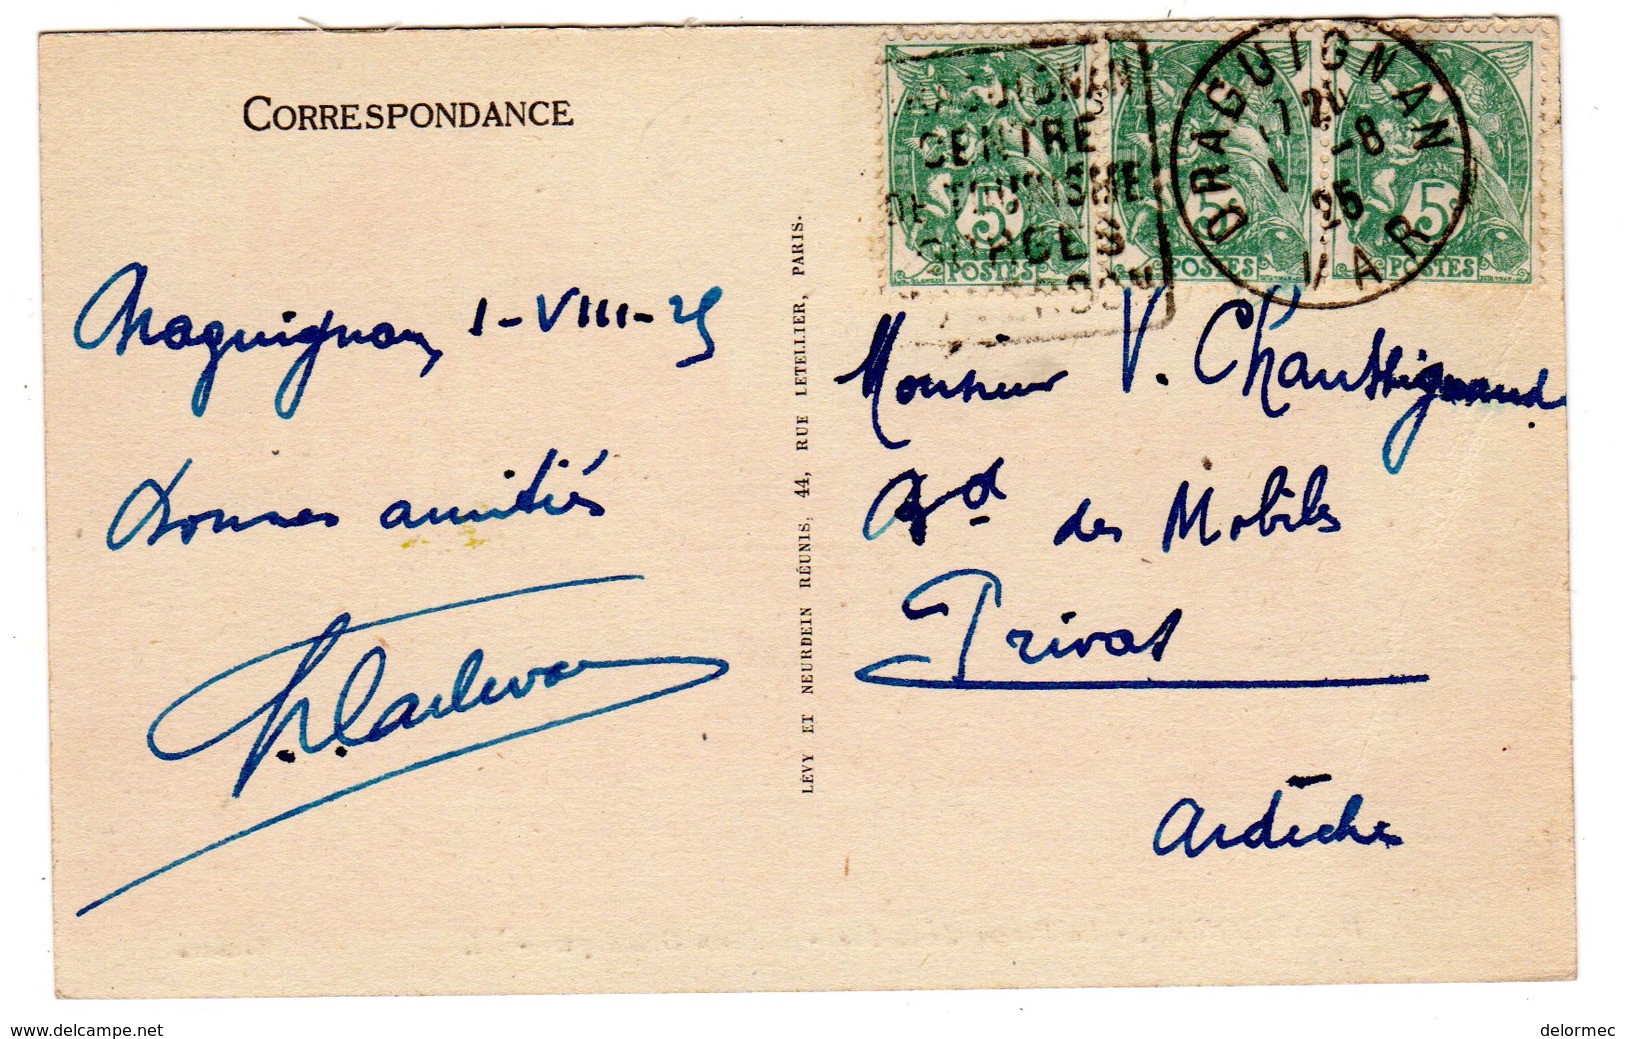 CORRESPONDANCE
Draguignan, 1-VIII-25
Bonnes amitiés
LÉVY ET NEURDEIN RÉUNIS, 44, RUE LETELLIER, PARIS.
DRAGUIGNAN
CENTRE
DE TOURISME
GORGES
DU VERDON
DRAGUIGNAN
17 20
1 -8
25
VAR
5 5 5
POSTES POSTES POSTES
Monsieur V. Chaussignand
Bd des Mobiles
Privas
Ardèche
www.delcampe.net
delormec